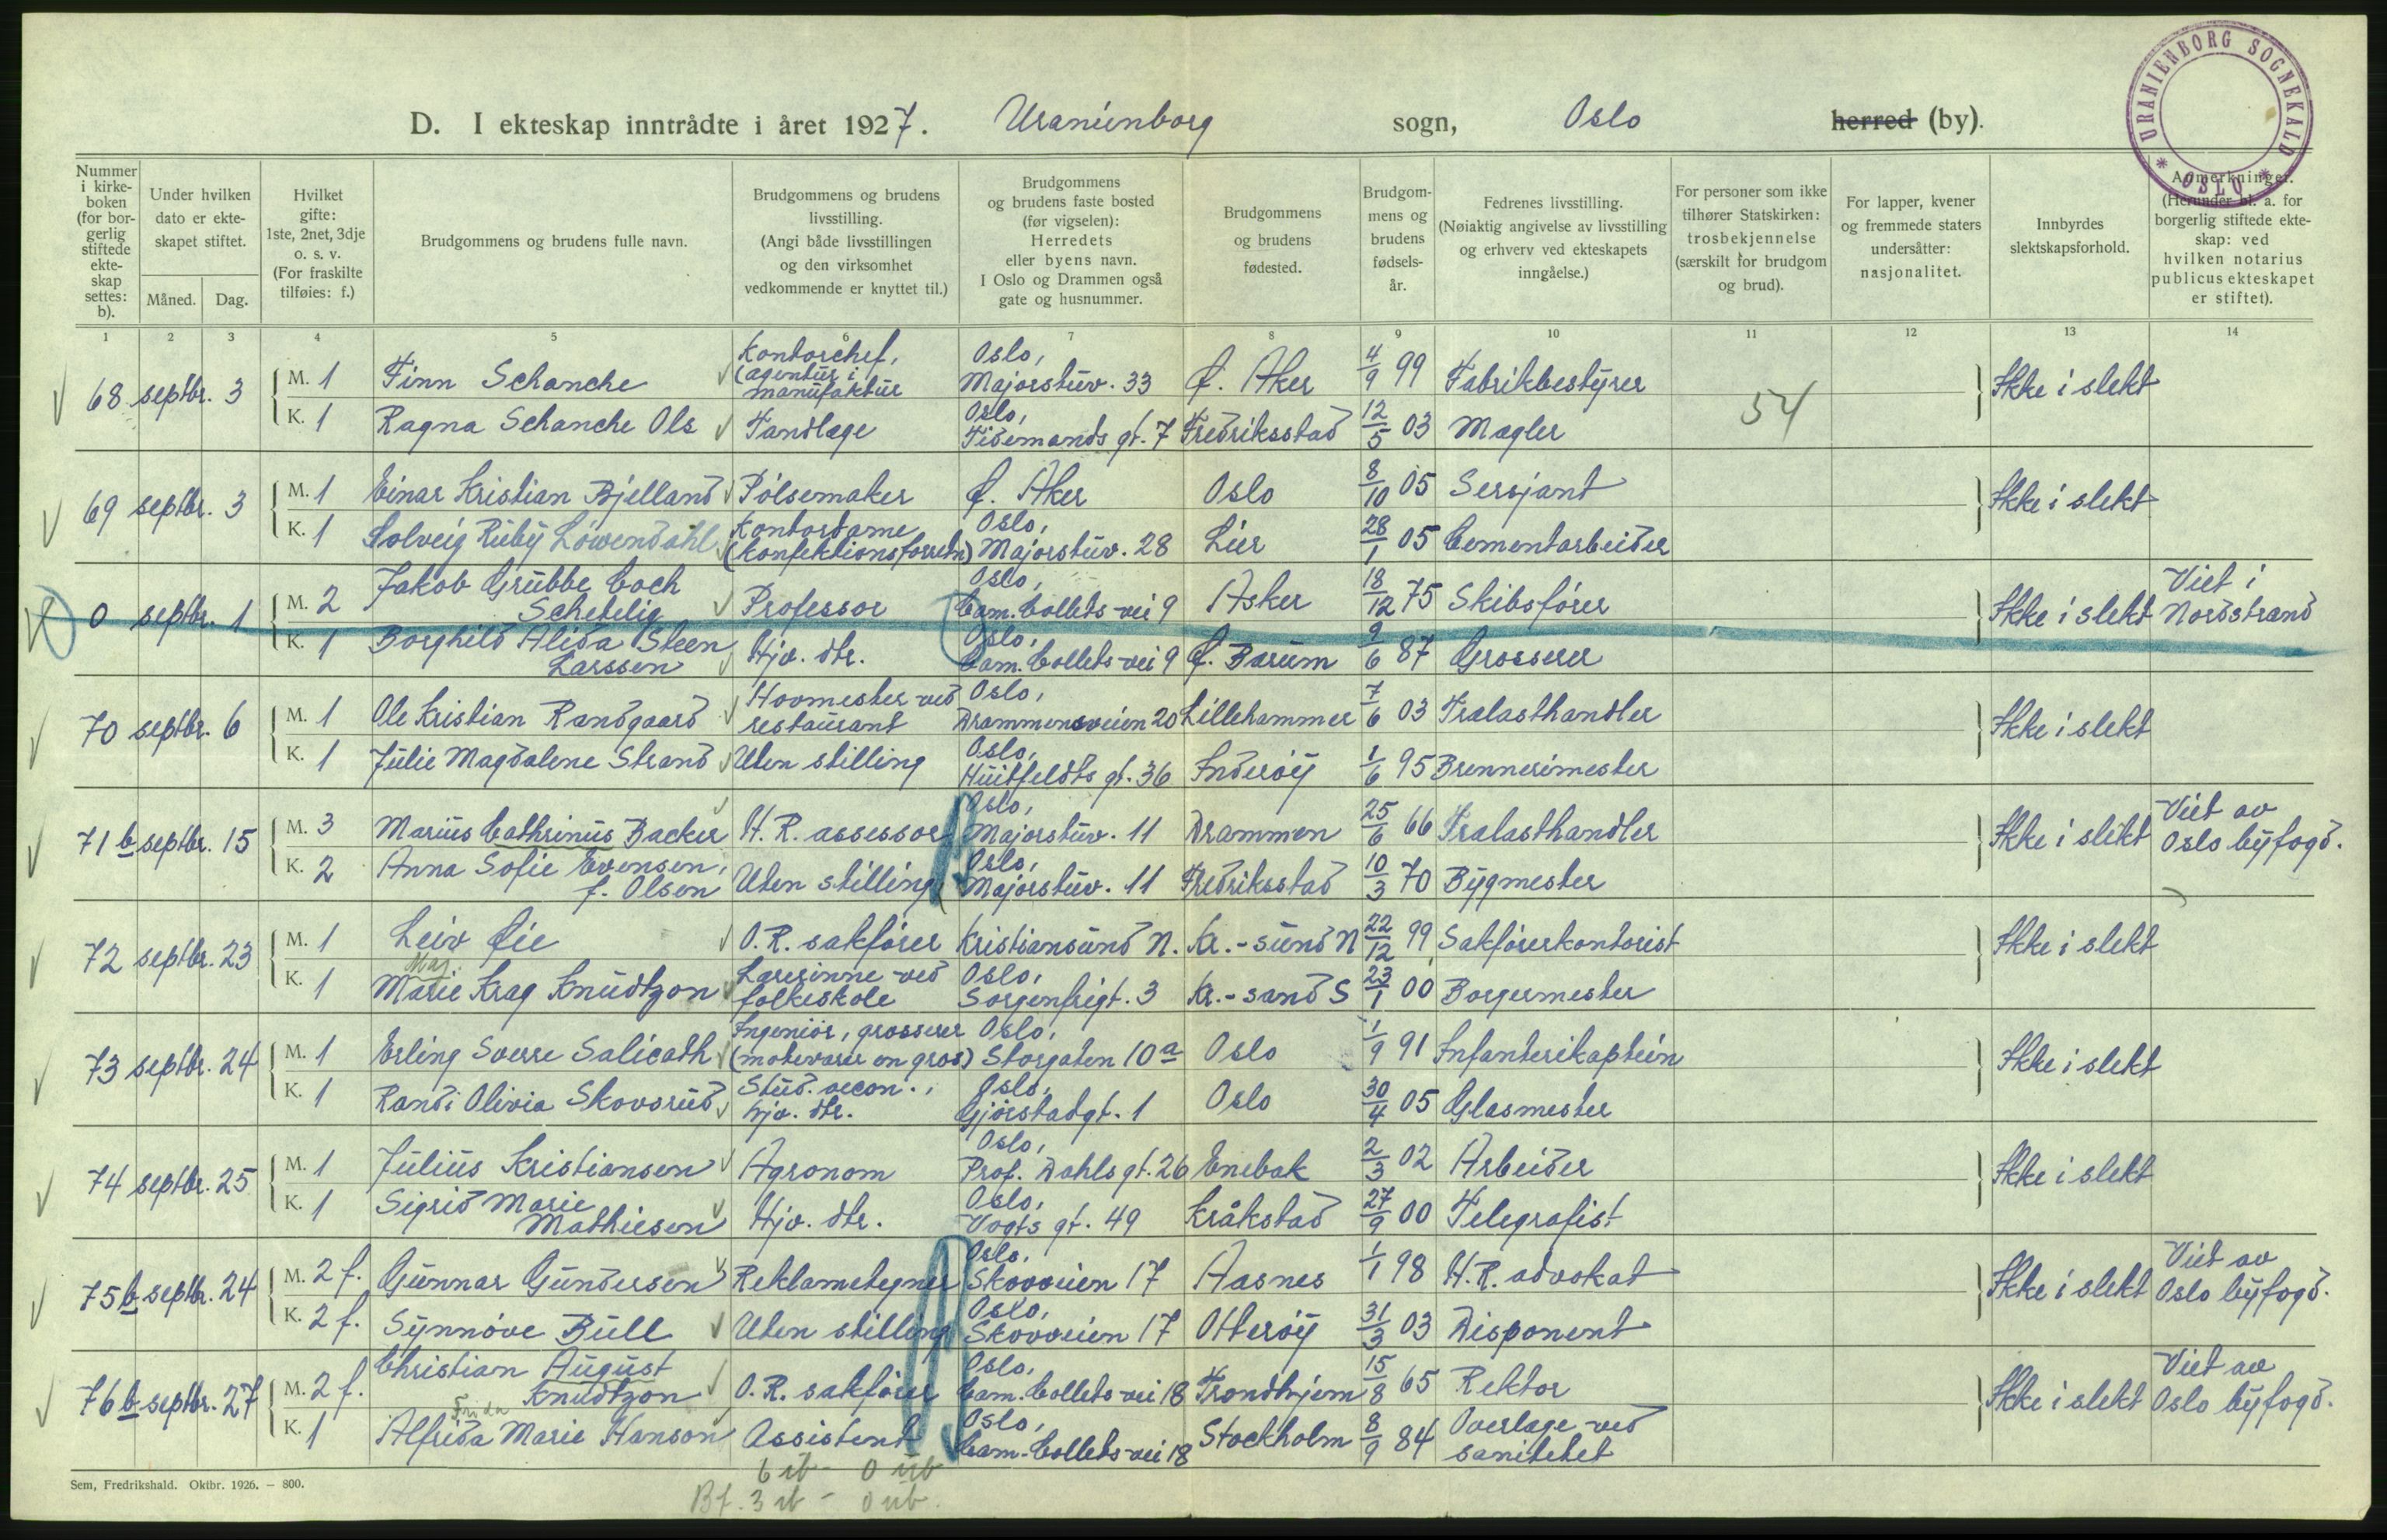 D. I ekteskap inntrådte i året 1927. Uranienborg sogn, Oslo herred (by).
URANIENBORG SOGNEKALD * OSLO *
Nummer i kirkeboken (for borgerlig stiftede ekteskap settes: b).
Under hvilken dato er ekteskapet stiftet.
Måned. Dag.
Hvilket gifte: 1ste, 2net, 3dje o. s. v. (For fraskilte tilføies: f.)
Brudgommens og brudens fulle navn.
Brudgommens og brudens livsstilling. (Angi både livsstillingen og den virksomhet vedkommende er knyttet til.)
Brudgommens og brudens faste bosted (før vigselen): Herredets eller byens navn. I Oslo og Drammen også gate og husnummer.
Brudgommens og brudens fødested.
Brudgommens og brudens fødselsår.
Fedrenes livsstilling. (Nøiaktig angivelse av livsstilling og erhverv ved ekteskapets inngåelse.)
For personer som ikke tilhører Statskirken: trosbekjennelse (særskilt for brudgom og brud).
For lapper, kvener og fremmede staters undersåtter: nasjonalitet.
Innbyrdes slektskapsforhold.
Anmerkninger. (Herunder bl. a. for borgerlig stiftede ekteskap: ved hvilken notarius publicus ekteskapet er stiftet).
1 2 3 4 5 6 7 8 9 10 11 12 13 14
68 septbr. 3 M. 1 Finn Schanche Kontorchef, (agentur i manufaktur Oslo, Majorstuv. 33 Ø. Aker 4/9 99 Fabrikbestyrer Ikke i slekt
K. 1 Ragna Schanche Ols Tandlæge Oslo, Tidemands gt. 7 Fredriksstad 12/5 03 Mægler 54
69 septbr. 3 M. 1 Einar Kristian Bjelland Pølsemaker Ø. Aker Oslo 8/10 05 Sersjant Ikke i slekt
K. 1 Solveig Ruby Löwendahl Kontordame (konfektionsforretn) Oslo, Majorstuv. 28 Lier 28/1 05 Cementarbeider
0 septbr. 1 M. 2 Jakob Grubbe Coch Schetelig Professor Oslo, Cam. Collets vei 9 Asker 18/12 75 Skibsfører Ikke i slekt Viet i Nordstrand
K. 1 Borghild Alida Steen Larssen Hjv. dtr. Oslo, Cam. Collets vei 9 Ø. Bærum 9/6 87 Grosserer
70 septbr. 6 M. 1 Ole Kristian Randgaard Hovmester ved restaurant Oslo, Drammensveien 20 Lillehammer 7/6 03 Trælasthandler Ikke i slekt
K. 1 Julie Magdalene Strand Uten stilling Oslo, Huitfeldts gt. 36 Inderøy 1/6 95 Brennerimester
71 b septbr. 15 M. 3 Marius Cathrinus Backer H. R. assessor Oslo, Majorstuv. 11 Drammen 25/6 66 Trælasthandler Ikke i slekt Viet av Oslo byfogd.
K. 2 Anna Sofie Evensen, f. Olsen Uten stilling Oslo, Majorstuv. 11 Fredriksstad 10/3 70 Bygmester
72 septbr. 23 M. 1 Leiv Øie O. R. sakfører Kristiansund N. Kr.-sund N 22/12 99 Sakførerkontorist Ikke i slekt
Maj
K. 1 Marie Krag Knudtzon Lærerinne ved folkeskole Oslo, Sorgenfrigt. 3 Kr.-sand S 23/1 00 Borgermester
73 septbr. 24 M. 1 Erling Sverre Salicath Ingeniør, grosserer (motevarer en gros) Oslo, Storgaten 10 a Oslo 1/9 91 Infanterikaptein Ikke i slekt
K. 1 Randi Olivia Skovsrud Stud. oecon., hjv. dtr. Oslo, Gjørstadgt. 1 Oslo 30/4 05 Glasmester
74 septbr. 25 M. 1 Julius Kristiansen Agronom Oslo, Prof. Dahls gt. 26 Enebak 2/3 02 Arbeider Ikke i slekt
K. 1 Sigrid Marie Mathiesen Hjv. dtr. Oslo, Vogts gt. 49 Kråkstad 27/9 00 Telegrafist
75 b septbr. 24 M. 2 f. Gunnar Gundersen Reklametegner Oslo, Skovveien 17 Aasnes 1/1 98 H. R. advokat Ikke i slekt Viet av Oslo byfogd.
K. 2 f. Synnøve Bull Uten stilling Oslo, Skovveien 17 Otterøy 31/3 03 Disponent
76 b septbr. 27 M. 2 f. Christian August Knudtzon O. R. sakfører Oslo, Cam. Collets vei 18 Trondhjem 15/8 65 Rektor Ikke i slekt Viet av Oslo byfogd.
Frida
K. 1 Alfrida Marie Hanson Assistent Oslo, Cam. Collets vei 18 Stockholm 8/9 84 Overlæge ved sanitetet
Sem, Fredrikshald. Oktbr. 1926. — 800.